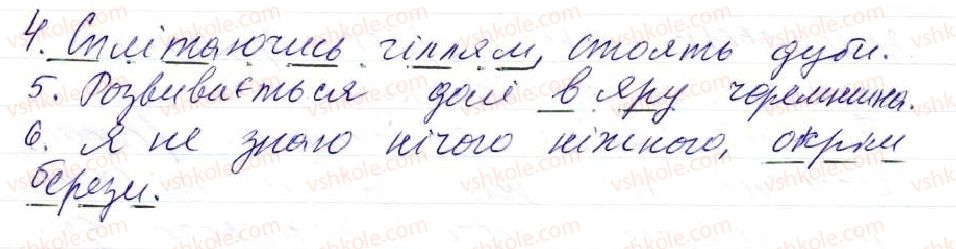 4. Сплітаючись гіллям, стоять дуби.
5. Розвивається долі в яру черемшина.
6. Я не знаю нічого ніжного, окрім
берези.